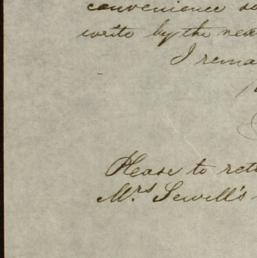 convenience
write by the next
I rema
Please to ret
Mrs Sewell's